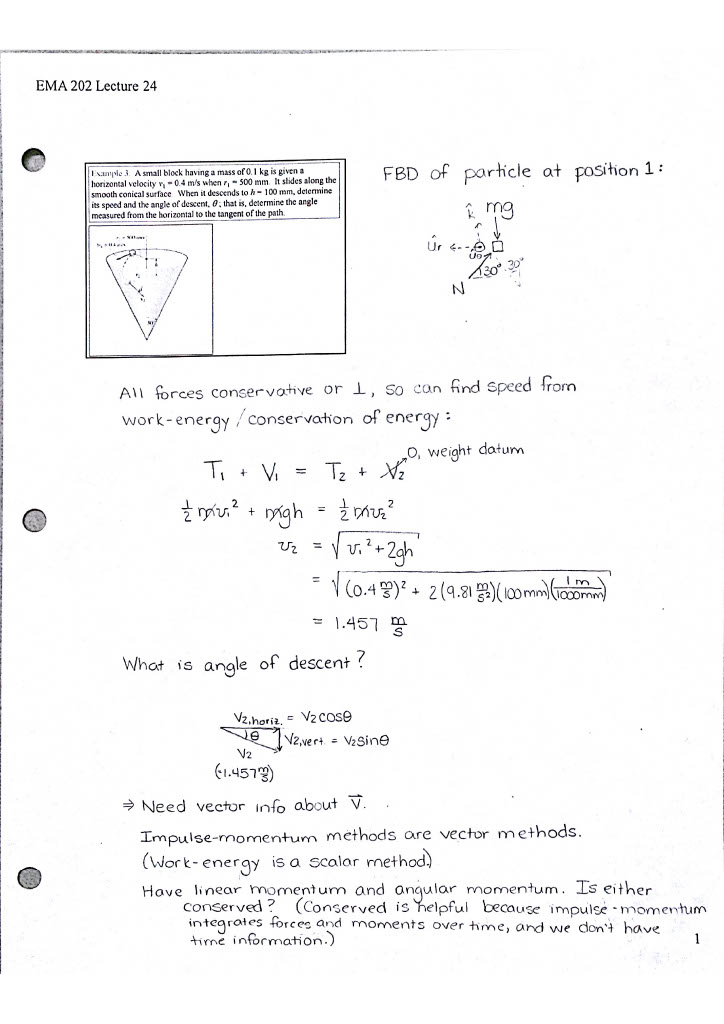 EMA 202 Lecture 24
Example 3. A small block having a mass of 0.1 kg is given a
horizontal velocity v₁ = 0.4 m/s when r₁ = 500 mm. It slides along the
smooth conical surface. When it descends to h = 100 mm, determine
its speed and the angle of descent, θ; that is, determine the angle
measured from the horizontal to the tangent of the path.
FBD of particle at position 1:
k̂ mg
Ûr
Uθ
30° 30°
N
All forces conservative or ⊥, so can find speed from
work-energy / conservation of energy:
0, weight datum
T₁ + V₁ = T₂ + V₂
½ mv₁² + mgh = ½ mv₂²
v₂ = √(v₁² + 2gh)
= √((0.4 m/s)² + 2(9.81 m/s²)(100mm)(1m/1000mm))
= 1.457 m/s
What is angle of descent?
V₂,horiz. = V₂cosθ
θ V₂,vert. = V₂sinθ
V₂
(1.457 m/s)
⇒ Need vector info about V⃗.
Impulse-momentum methods are vector methods.
(Work-energy is a scalar method.)
Have linear momentum and angular momentum. Is either
conserved? (Conserved is helpful because impulse-momentum
integrates forces and moments over time, and we don't have
time information.)
1